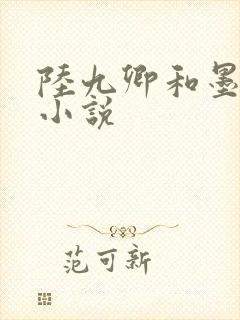 陸九卿和墨
小說
范可新